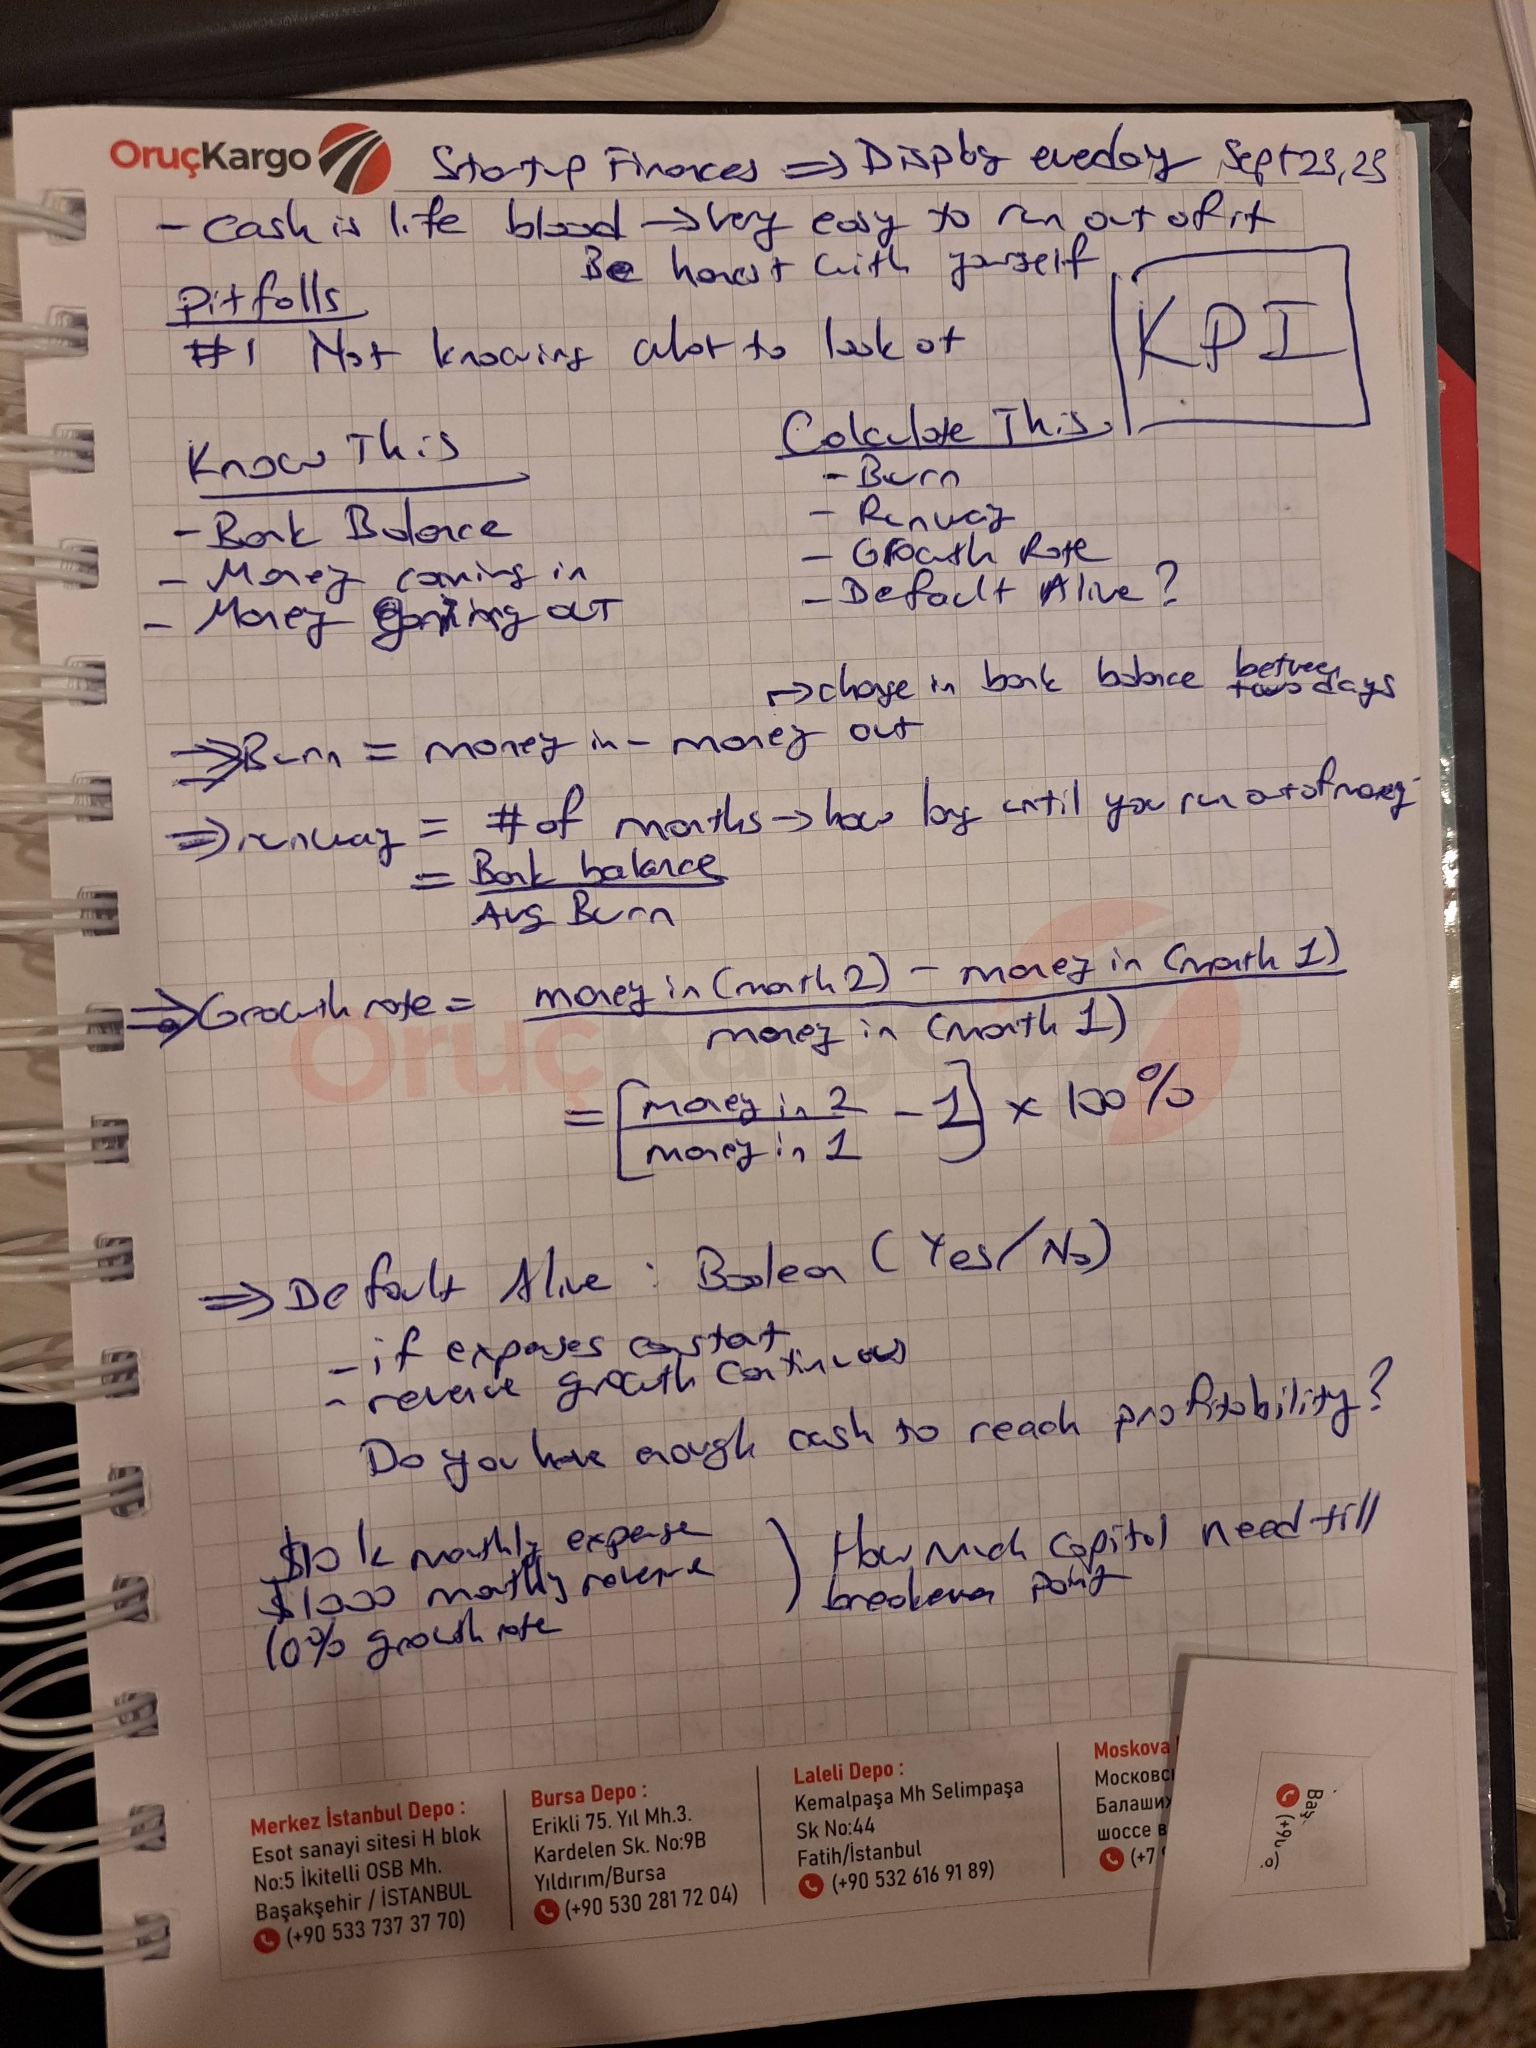 OruçKargo Startup Finances => Display everyday Sept 23, 23
- Cash is life blood -> very easy to run out of it
Be honest with yourself
Pitfalls
#1 Not knowing what to look at
KPI
Know This
- Bank Balance
- Money coming in
- Money going out
Calculate This
- Burn
- Runway
- Growth Rate
- Default Alive?
-> change in bank balance between two days
=> Burn = money in - money out
=> runway = # of months -> how long until you run out of money
= Bank balance
Avg Burn
=> Growth rate = money in (month 2) - money in (month 1)
money in (month 1)
= [money in 2 - 1] x 100%
money in 1
OruçKargo
=> Default Alive : Boolean (Yes/No)
- if expenses constant
- revenue growth continuous
Do you have enough cash to reach profitability?
$10k monthly expense
$1000 monthly revenue
10% growth rate
) How much capital need till
breakeven point
Merkez İstanbul Depo :
Esot sanayi sitesi H blok
No:5 İkitelli OSB Mh.
Başakşehir / İSTANBUL
(+90 533 737 37 70)
Bursa Depo :
Erikli 75. Yıl Mh.3.
Kardelen Sk. No:9B
Yıldırım/Bursa
(+90 530 281 72 04)
Laleli Depo :
Kemalpaşa Mh Selimpaşa
Sk No:44
Fatih/İstanbul
(+90 532 616 91 89)
Moskova
(+7